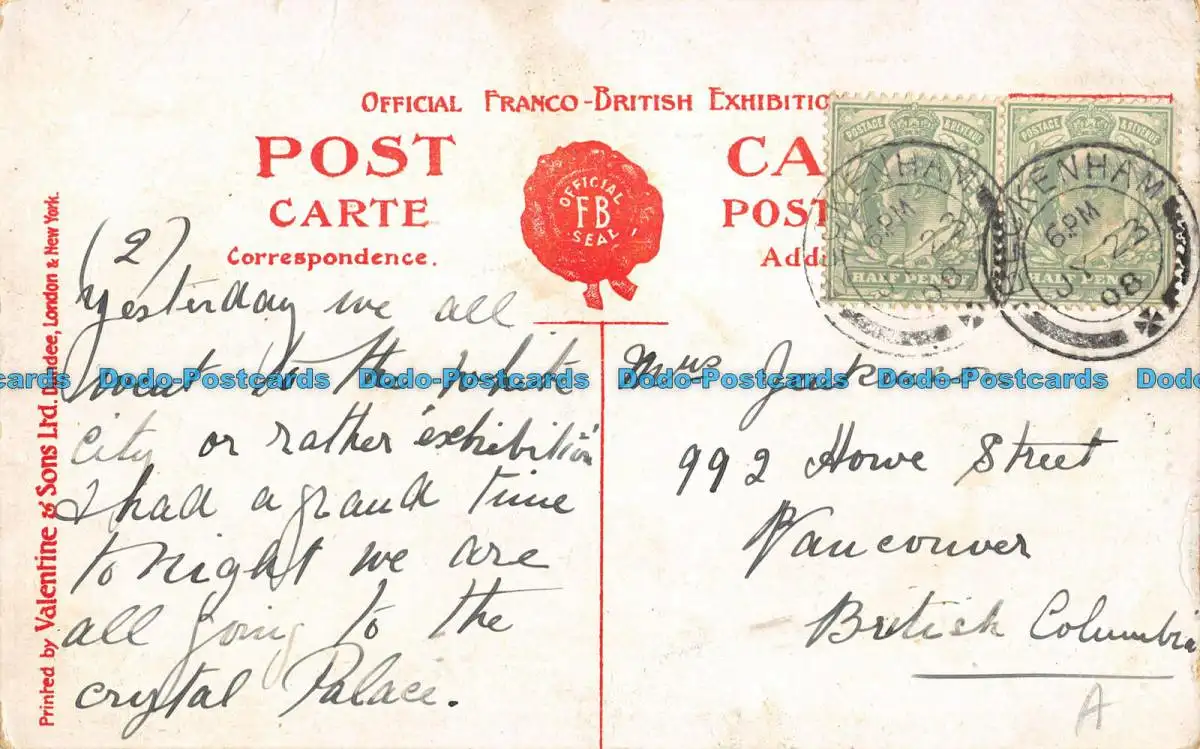 OFFICIAL FRANCO-BRITISH EXHIBITIO
POST CA
CARTE POST
Correspondence. Add
OFFICIAL
FB
SEAL
POSTAGE & REVENUE
HALF PEN
POSTAGE & REVENUE
HALF PEN
BECKENHAM
6.PM
JY 22
08
Printed by Valentine & Sons Ltd. Dundee, London & New York.
(2)
Yesterday we all
went to the white
city or rather "exhibition"
I had a grand time
to night we are
all going to the
crystal Palace.
Mrs
992 Howe Street
Vancouver
British Columbia
A
Dodo-Postcards Dodo-Postcards Dodo-Postcards Dodo-Postcards